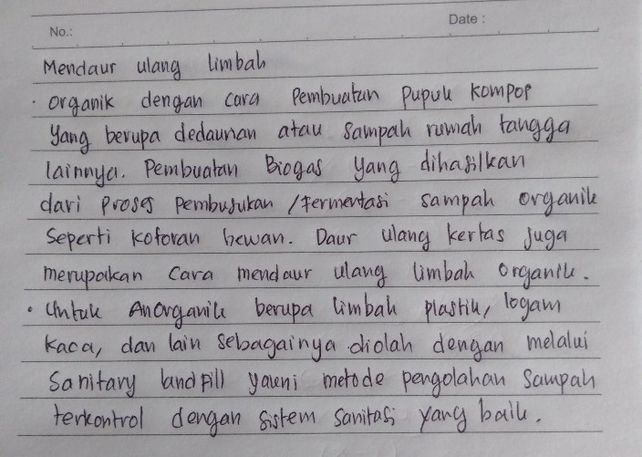 No.:
Date :
Mendaur ulang limbah
• Organik dengan cara Pembuatan Pupuk Kompos
Yang berupa dedaunan atau sampah rumah tangga
lainnya. Pembuatan Biogas yang dihasilkan
dari Proses Pembusukan /Fermentasi sampah organik
Seperti kotoran hewan. Daur ulang kertas Juga
merupakan Cara mendaur ulang limbah Organik.
• Untuk AnOrganik berupa limbah plastik, logam
Kaca, dan lain Sebagainya diolah dengan melalui
Sanitary landfill yakni metode pengolahan Sampah
terkontrol dengan sistem Sanitasi yang baik.